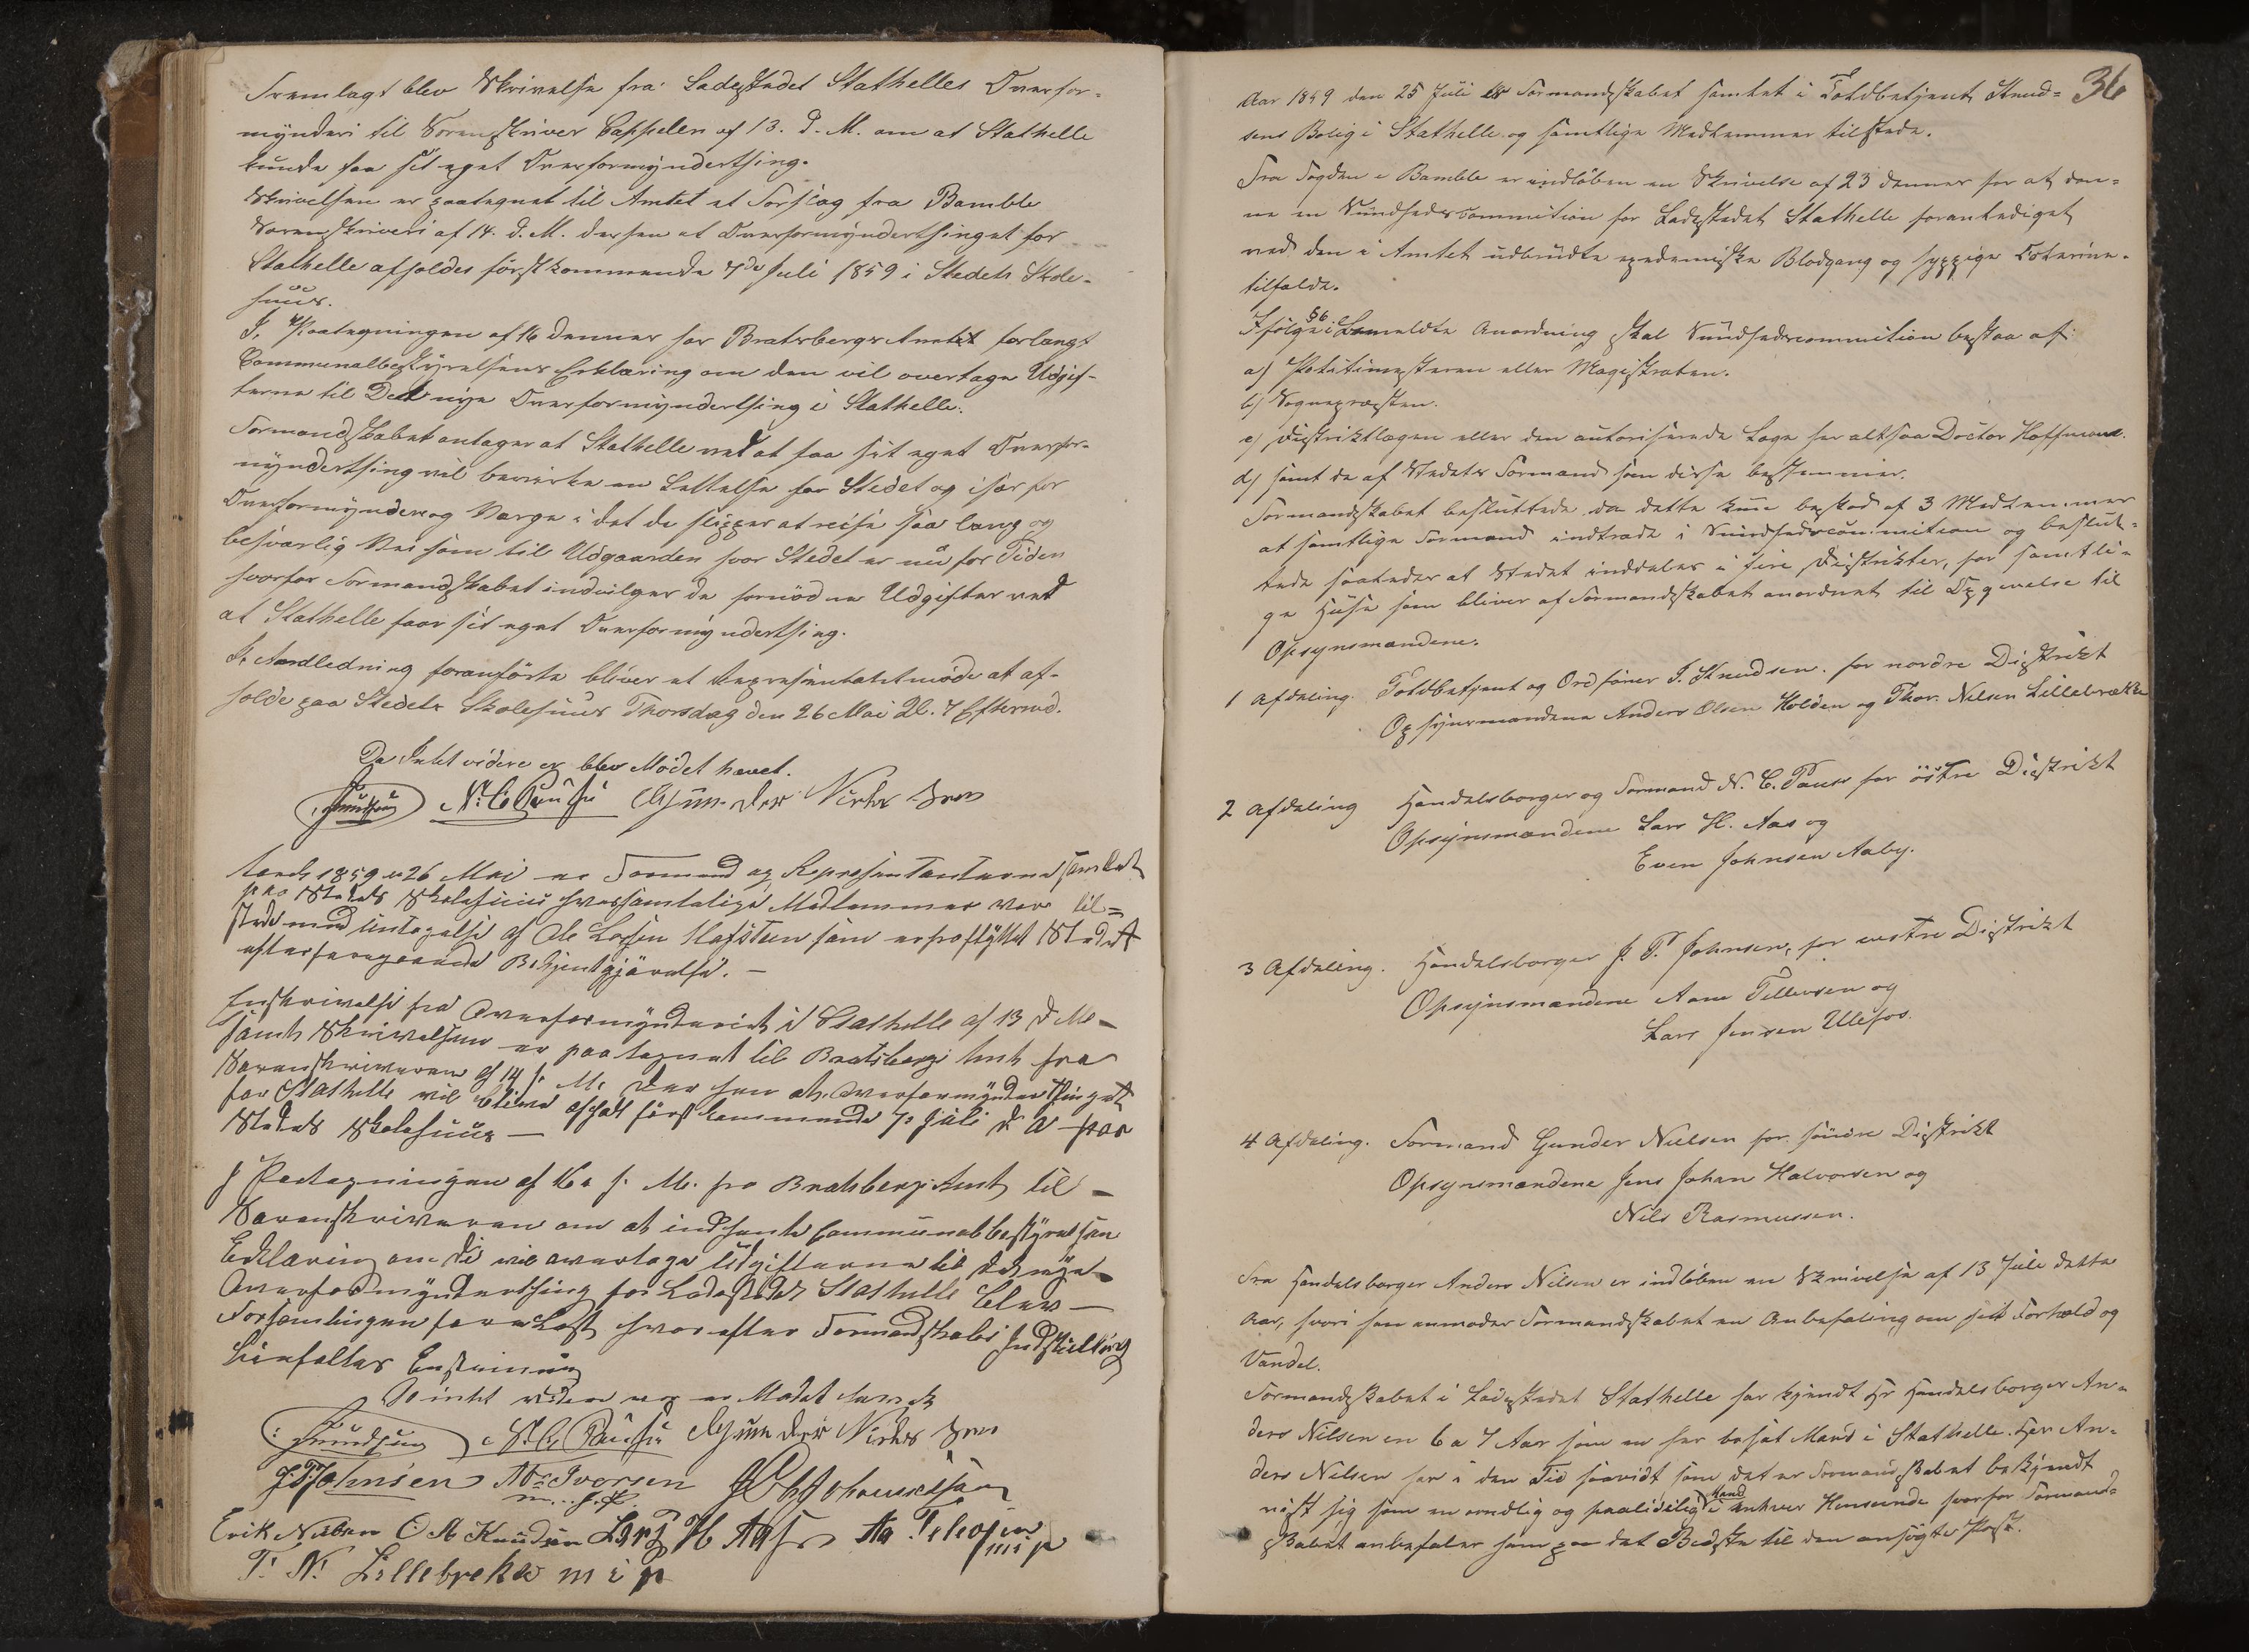 Fremlagt blev Skrivelse fra Ladestedet Stathelles Overfor-
mynderi til Sorenskriver Cappelen af 13. d. M. om at Stathelle
kunde faa sit eget Overformynderthing.
Skrivelsen er paategnet til Amtet et Forslag fra Bamble
Sorenskriveri af 14. d. M. derhen at Overformynderthinget for
Stathelle afholdes förstkommende 7de Juli 1859 i Stedets Skole-
huus.
I Paategningen af 16 dennes har Bratsbergs Amtet forlangt
Communalbestyrelsens Erklæring om den vil overtage Udgif-
terne til Det nye Overformynderthing i Stathelle.
Formandskabet antager at Stathelle ved at faa sit eget Overfor-
mynderthing vil bevirke en Lettelse for Stedet og især for
Overformynder og Værge i det de slipper at reise saa lang og
besværlig Vei som til Udgaarden hvor Stedet er nu for Tiden
hvorfor Formandskabet indvilger de fornödne Udgifter ved
at Stathelle faar sit eget Overformynderthing.
I Andledning foranförte bliver et Representatmöde at af-
holde paa Stedets Skolehuus Thorsdag den 26 Mai Kl. 7 Eftermd.
Da Intet videre er blev Mödet hævet.
Knudsen N. C. Pauss Gunder Nielsen
Aaret 1859 26 Mai er Formend og Representanterne samlet
paa Stedets Skolehuus hvor samtelige Medlemmer var til-
stede med Untagelse af Ole Larsen Hafsteen som er fraflyttet Stedet
efter foregaaende Bekjentgjörelse. —
En skrivelse fra Overformynderiet i Stathelle af 13 d M. —
samt Skrivelsen er paategnet til Bratsbergs Amt fra
Sorenskriveren af 14 f. M. der hen at Overformynderthinget
for Stathelle vil blive afholdt först kommende 7 Juli d A paa
Stedets Skolehuus —
I Paategningen af 16 f. M. fra Bratsbergs Amt til —
Sorenskriveren om at indhente Communalbestyrelsen
Erklæring om de vil overtage Udgifterne til det nye
Overformynderthing for Ladestedet Stathelle blev —
Forsamlingen forelæst hvorefter Formandskabs Indstilling
bifaltes Enstemmig
Da intet videre var er Mødet hævet
Knudsen N. C. Pauss Gunder Nielsen
J. P. Johnsen Ns Iversen
m. f. P.
Erik Nielsen O. A. Knudsen Lars H Aas
T. N. Lillebrekke m i p
36
Aar 1859 den 25 Juli er Formandskabet samlet i Toldbetjent Knud-
sens Bolig i Stathelle og samtlige Medlemmer tilstede.
Fra Fogden i Bamble er indlöben en Skrivelse af 23 dennes for at dan-
ne en Sundhedscommition for Ladestedet Stathelle foranlediget
ved den i Amtet udbrudte epedemiske Blodgang og hyppige Colerine-
tilfælde.
Ifölge §6 i anmeldte Anordning skal Sundhedscommition bestaa af:
a) Politimesteren eller Magistraten.
b) Sognepræsten.
c) Districtlægen eller den autoriserede Læge her altsaa Doctor Hoffmann.
d) samt de af Stedets Formænd som disse bestemmer.
Formandskabet besluttede da dette kun bestod af 3 Medlemmer
at samtlige Formænd indtræde i Sundhedscommition og beslut-
tede saaledes at Stedet inddeles i fire Distrikter, har samtli-
ge Huse som bliver af Formandskabet anordnet til Opgivelse til
Opsynsmændene.
1 Afdeling. Toldbetjent og Ordförer J. Knudsen. for nordre Distrikt
Opsynsmændene Anders Olsen Holden og Thor. Nilsen Lillebrække
2 Afdeling Handelsborger og Formand N. C. Pauss for östre Distrikt
Opsynsmændene Lars H. Aas og
Even Johnsen Aaby.
3 Afdeling. Handelsborger J. P. Johnsen, for vestre Distrikt
Opsynsmændene Aanu Tellevsen og
Lars Jensen Ulefos.
4 Afdeling. Formand Gunder Nielsen for söndre Distrikt
Opsynsmændene Jens Johan Halvorsen og
Nils Rasmussen.
Fra Handelsborger Anders Nilsen er indlöben en Skrivelse af 13 Juli dette
Aar, hvori han anmoder Formandskabet en Anbefaling om sit Forhold og
Vandel.
Formandskabet i Ladestedet Stathelle har kjendt Hr Handelsborger An-
ders Nilsen en 6 a 7 Aar som en her bosat Mand i Stathelle. Her An-
ders Nilsen har i den Tid saavidt som det er Formandskabet bekjendt
vist sig som en ordlig og paalidelig Mand i enhver Henseende hvorfor Formand-
skabet anbefaler ham paa det Bedste til den ansögte Post.